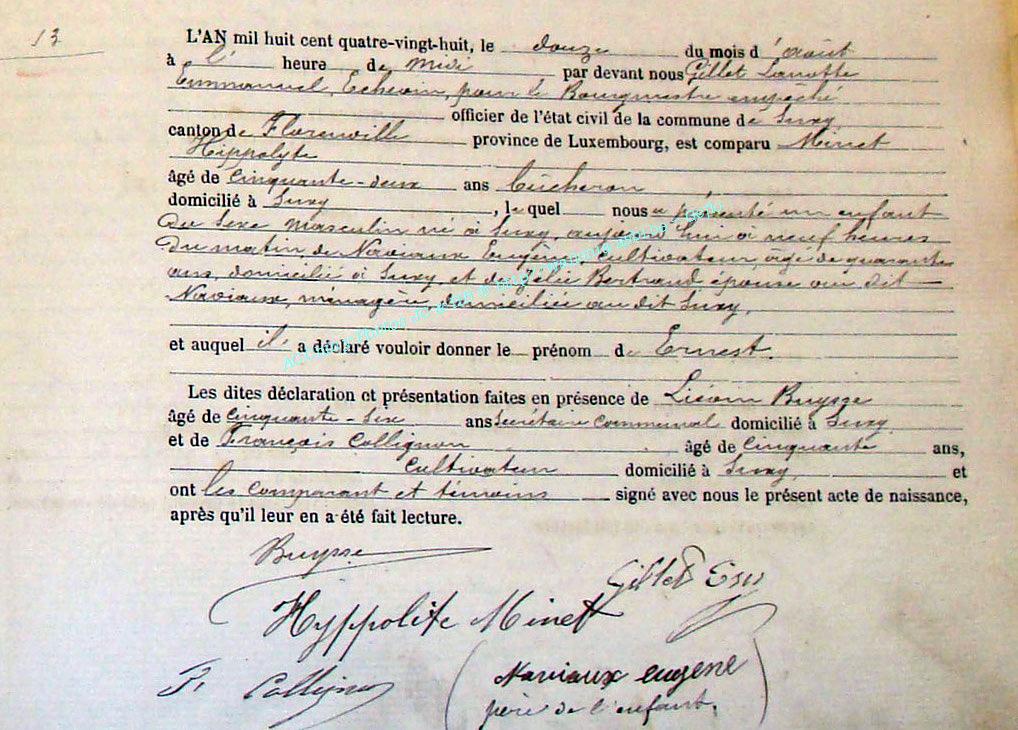 13
L'AN mil huit cent quatre-vingt-huit, le douze du mois d'août
à l' heure de midi par devant nous Gillet Lanotte
Emmanuel, Echevin, pour le Bourgmestre empêché
officier de l'état civil de la commune de Suxy,
canton de Florenville province de Luxembourg, est comparu Minet
Hippolyte
âgé de cinquante-deux ans bûcheron,
domicilié à Suxy, lequel nous a présenté un enfant
du sexe masculin né à Suxy, aujourd'hui à neuf heures
du matin, de Naviaux Eugène, cultivateur, âgé de quarante
ans, domicilié à Suxy, et de Zélie Bertrand épouse au dit
Naviaux, ménagère, domiciliée au dit Suxy,
et auquel il a déclaré vouloir donner le prénom de Ernest.
Les dites déclaration et présentation faites en présence de Buysse
âgé de cinquante-six ans Secrétaire communal domicilié à Suxy,
et de François Collignon âgé de cinquante ans,
cultivateur domicilié à Suxy, et
ont les comparant et témoins signé avec nous le présent acte de naissance,
après qu'il leur en a été fait lecture.
Buysse
Gillet
Hyppolite Minet
F. Collignon
Naviaux eugene
père de l'enfant.